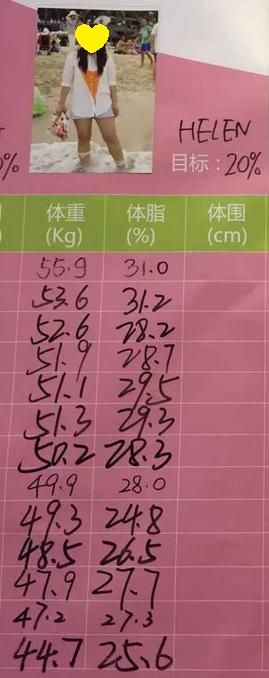 HELEN
0% 目标：20%
体重 体脂 体围
(Kg) (%) (cm)
55.9 31.0
53.6 31.2
52.6 28.2
51.9 28.7
51.1 29.5
51.3 29.3
50.2 28.3
49.9 28.0
49.3 24.8
48.5 26.5
47.9 27.7
47.2 27.3
44.7 25.6